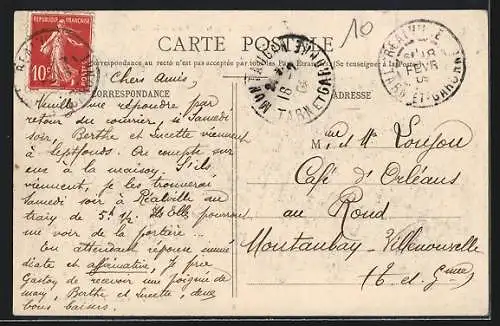 10
CARTE POSTALE
REPUBLIQUE FRANÇAISE
POSTES
10c
RÉALVILLE
18
FEVR
TARN-ET-GARONNE
MONTAUBAN
18 - 2
TARN ET GARONNE
Correspondance au recto n'est pas acceptée par tous les Pays Etrangers (Se renseigner à la
CORRESPONDANCE
ADRESSE
Chers Amis,
Veuille me répondre par
retour du courrier, si Samedi
soir, Berthe et Sucette viennent
à Septfonds. On compte sur
eux à la maison. S'ils
viennent, je les trouverai
samedi soir à Réalville au
train de 5h ½. Elles pourront
me voir de la portière ...
En attendant réponse immé
diate et affirmative, je prie
Gaston de recevoir une poignée de
main, Berthe et Sucette, deux
bons baisers.
M. et Me Loujou
Café d'Orléans
au Rond
Montauban-Villenouvelle
(T. et Gnne)